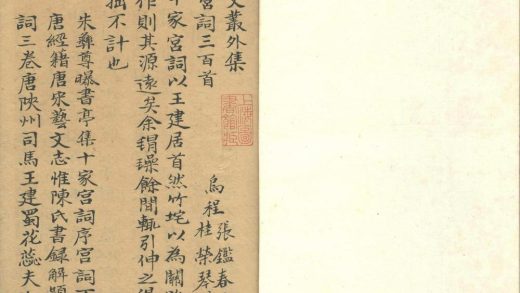 文叢外集
宮詞三百首
烏程
張鑑春
桂榮琴
十家宮詞以王建居首然竹垞以為關
作則其源遠矣余璪餘閒輒引伸之得
拙不計也
朱彝尊曝書亭集十家宮詞序宮詞
唐經籍唐宋藝文志惟陳氏書録解題
詞三卷唐陝州司馬王建蜀花蕊夫
上海圖
書館藏